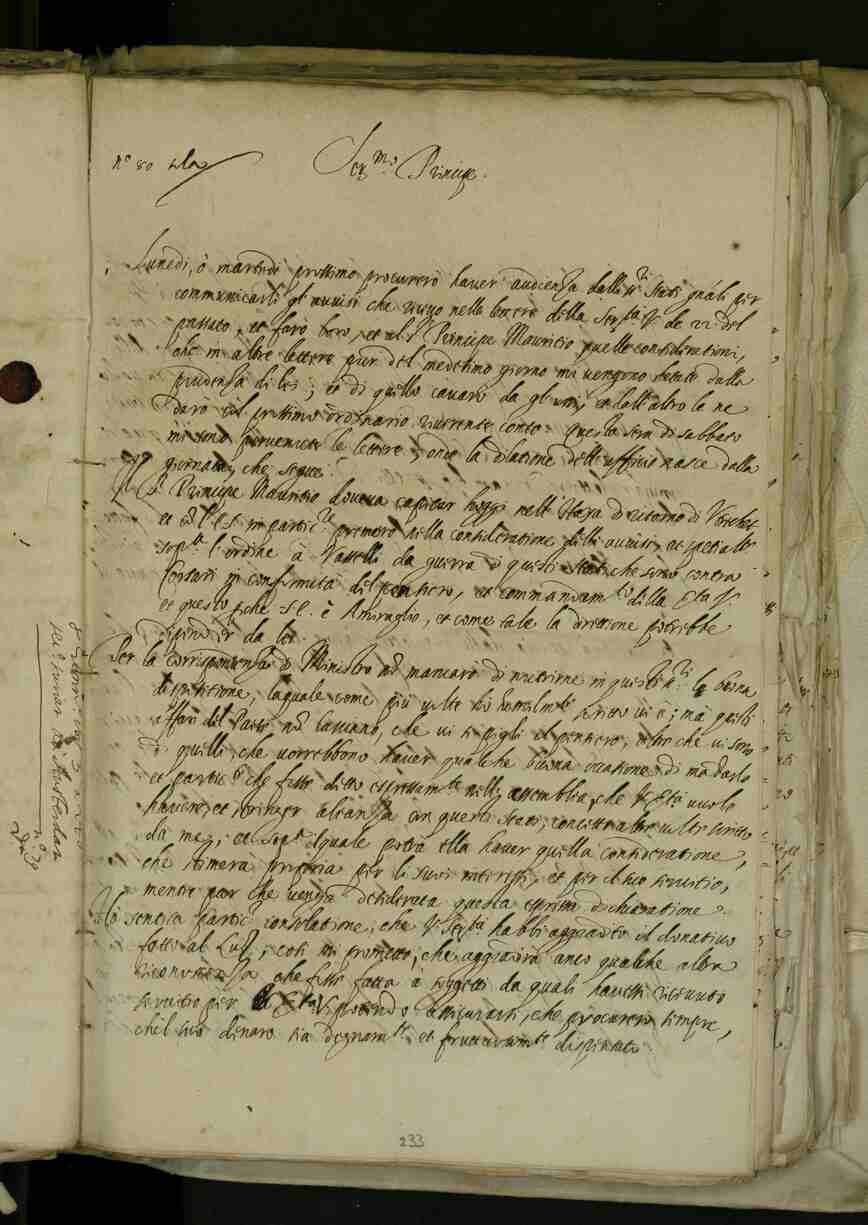 n.º 80 sola
Ser.mo Principe.
Lunedì, ò martedì prossimo procurerò haver audienza dalli ss.ri Stati gnâli per
communicarli gl'avvisi che tengo nelle lettere della Ser.tà V. de 22 del
passato, et farò loro, et al s.r Principe Mauritio quelle considerationi,
che in altre lettere pur del medesimo giorno mi vengono dettate dalla
prudenza di lei; et di quello cavarò da gl'uni, et dall'altro le ne
darò col prossimo ordinario riverente conto. Questa sera di sabbato
mi sono pervenute le lettere, onde la dilatione dell'officio nasce dalla
giornata, che segue.
Il s.r Principe Mauritio doveva capitar hoggi nell'Haya di ritorno di
et à S. E. impartirò le considerationi delli avvisi, et specialm.te
sop.a l'ordine à Vasselli da guerra di questi Stati che sono contra
Corsari in conformità del pensiero, et commandam.to della Ser.tà V.
et questo perche S. E. è Amiraglio, et come tale la direttione potrebbe
dipender da lei.
Per la corrispondenza di Ministro nò mancarò di nutrirne in questi ss.ri la buona
dispositione, la quale come più volte hò humilmente scritto vi è; mà questi
affari del Paese nò lasciano, che vi si pigli il pensiero, oltre che vi sono
di quelli, che vorrebbono haver qualche buona occasione di mandarlo
et partic.e che fosse detto espressam.te nelle assemblea, che V. Ser.tà vuole
havere, et stringer alleanza con questi Stati, concetto altre volte scritto
da me; et sop.a il quale potrà ella haver quella consideratione,
che stimerà propria per li suoi interessi, et per il suo servitio,
mentre par che venga desiderata questa espressa dichiaratione.
Hò sentita partic.r consolatione, che V. Ser.tà habbi aggradito il donativo
fatto al; così mi prometto, che aggradirà anco qualche altra
riconoscenza che fosse fatta à soggetti da quali havessi ricevuto
servitio per V. Ser.tà potendo assicurarsi, che procurerò sempre,
che'l suo denaro sia degnam.te, et fruttuosam.te dispensato.
233